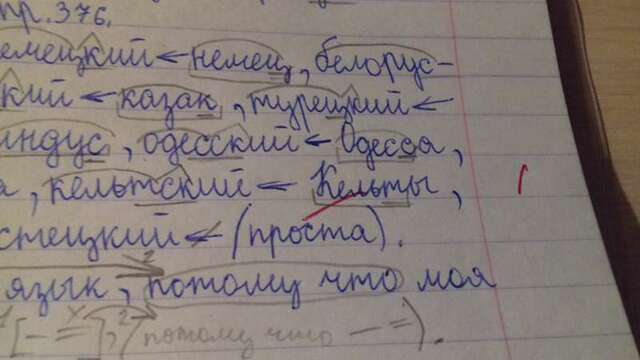 пр. 376.
емецкий ← немец, белорус-
кий ← казак, турецкий ←
индус, одесский ← Одесса,
а, кельтский ← Кельты,
стецкий ← (проста).
язык, потому что моя
[— =], (потому что — =).